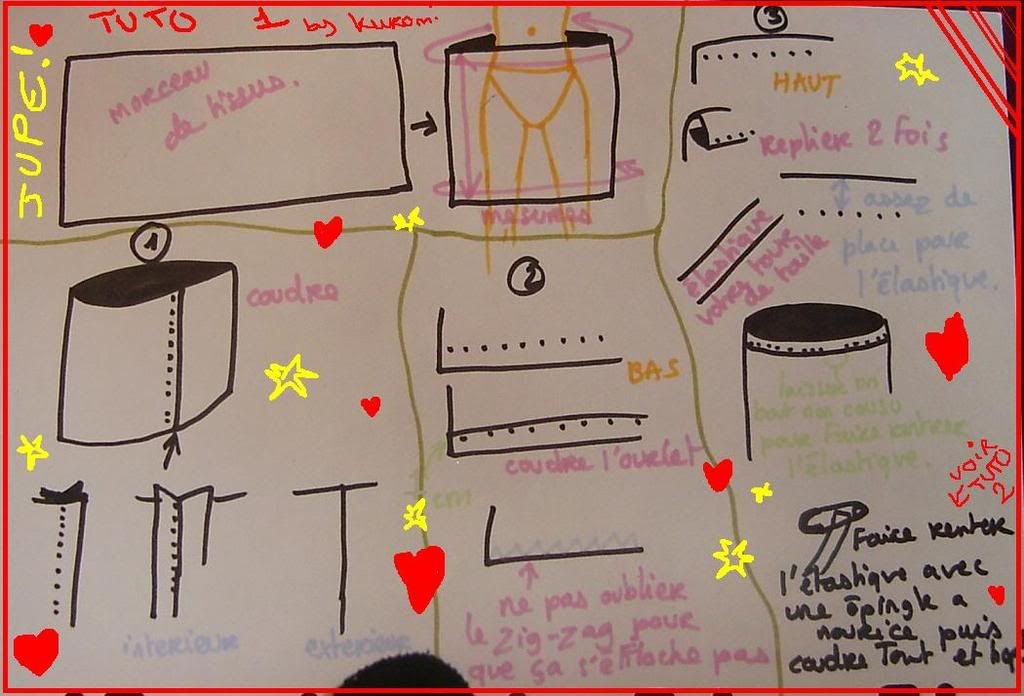 TUTO 1 by kuromi
JUPE!
morceau
de tissus.
mesures
1
coudre
interieur
exterieur
2
BAS
coudre l'ourlet
cm
ne pas oublier
le zig-zag pour
que ça s'éfiloche pas
3
HAUT
replier 2 fois
assez de
place pour
l'élastique.
élastique
votre tour
de taille
laisser un
bout non cousu
pour faire rentrer
l'élastique.
VOIR
TUTO
2
Faire rentrer
l'élastique avec
une épingle a
nourrice, puis
coudre Tout et hop